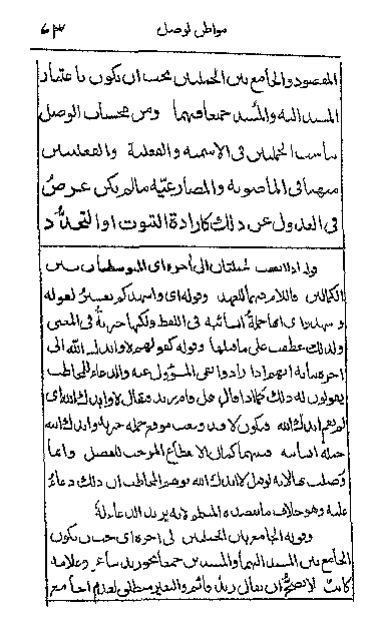 مواطن لوصل ٦٣
المقصود والجامع بين الجملتين يجب ان يكون باعتبار
المسند اليه والمسند جميعا فيهما ومن محسنات الوصل
تناسب الجملتين في الاسمية والفعلية والفعليتين
منهما في الماضوية والمضارعية ما لم يكن عرض
في العدول عن ذلك كارادة الثبوت او التجدد
قوله اذا اتفقت الجملتان الى آخره اي المتوسطتان بين
الكمالين فاللام فيهما للعهد وقوله اي واشهدكم تفسير لقوله
واشهدوا اي انها جملة انشائية في اللفظ ولكنها خبرية في المعنى
ولذلك عطف على ما قبلها وقوله كقولهم لا وايدك الله الى
اخره بيانه انهم اذا ارادوا نفي المسؤل عنه والدعاء للمخاطب
يقولون له ذلك كما اذا قال هل قام زيد فقال لا وايدك الله اي
لم يقم ايدك الله فيكون لا قد وقعت موقع جملة خبرية وايدك الله
جملة انشائية فبينهما كمال الانقطاع الموجب للفصل وانما
وصلت لانه لو قيل لا ايدك الله توهم المخاطب ان ذلك دعاء
عليه وهو خلاف ما يقصده المتكلم لانه يريد الدعاء له
وقوله الجامع بين الجملتين الى اخره اي يجب ان يكون
الجامع بين المسند اليهما والمسندين جميعا نحو زيد شاعر وغلامه
كاتب لا يصح ان يقال زيد قائم والبعير لعدم الجامع